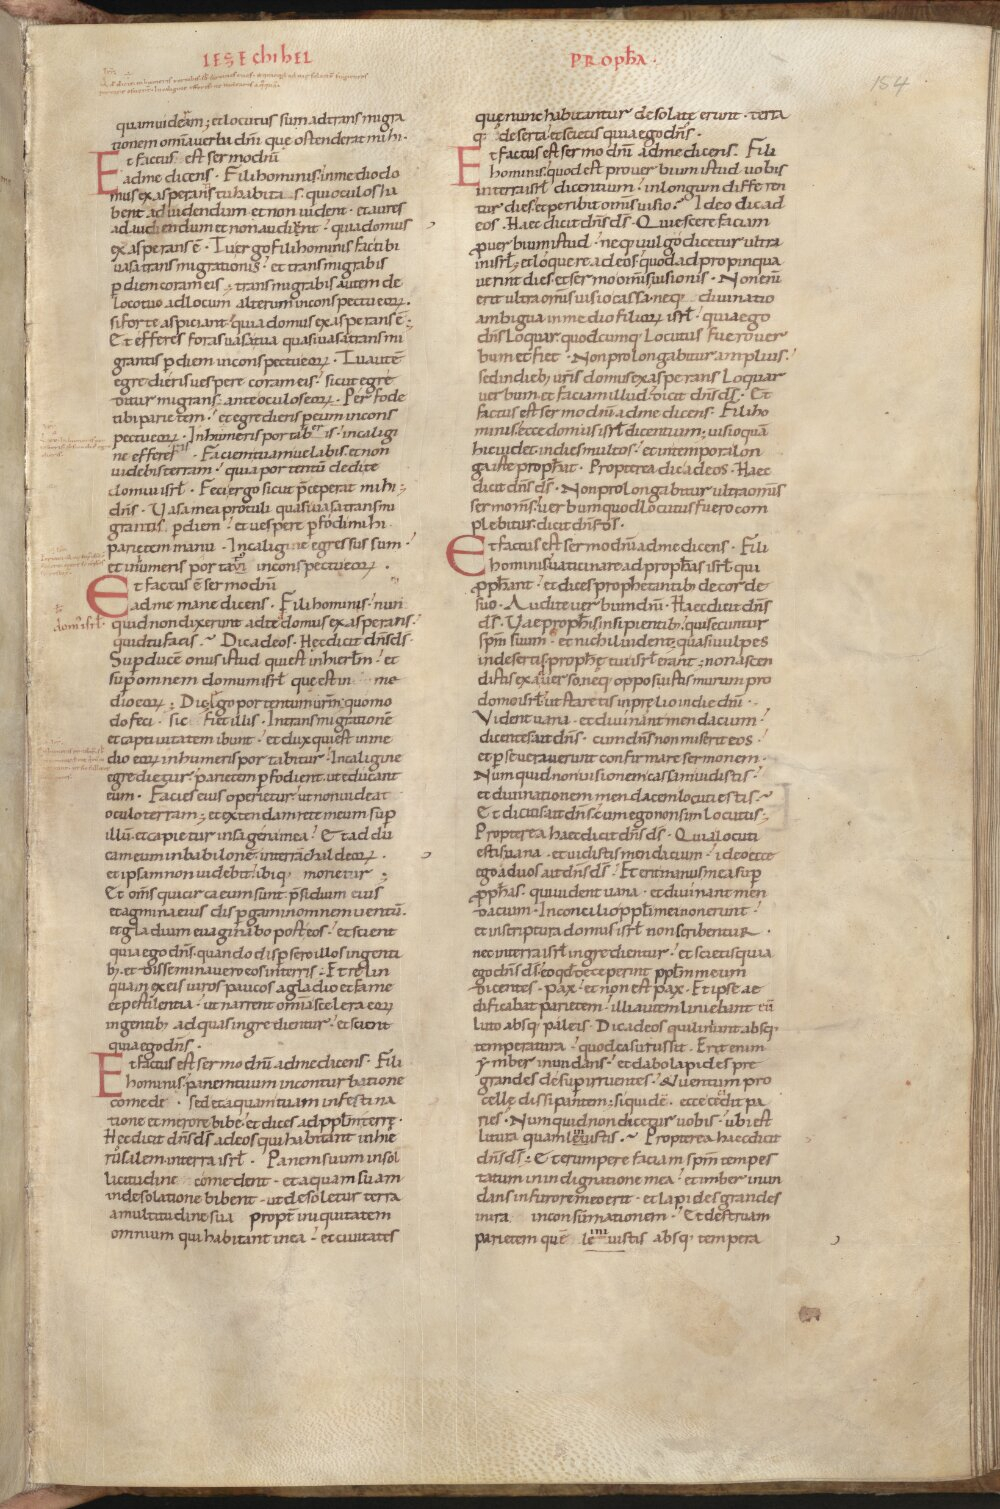 IESEChIhEL
PROPħA·
154
quamuideram; et locutus sum ad transmigra
tionem omia uerba dnī que ostenderat mihi·
Et factus est sermo dnī
ad me dicens· Fili hominis in medio do
mus exasperans tu habitas· qui oculos ha
bent ad uidendum et non uident· et aures
ad audiendum et non audiunt· quia domus
exasperans ē· Tu ergo fili hominis fac tibi
uasa transmigrationis· et transmigrabis
p diem coram eis; transmigrabis autem de
loco tuo ad locum alterum in conspectu eorꝝ·
si forte aspiciant· quia domus exasperans ē;
Et efferes foras uasa tua quasi uasa transmi
grantis p diem in conspectu eorꝝ· Tu autē
egredieris uespere coram eis· sicut egre
ditur migrans· ante oculos eorꝝ· Perfode
tibi parietem· et egredieris p eum in cons
pectu eorꝝ· In humeris portaberis· in caligi
ne effereris· Faciem tuam uelabis· et non
uidebis terram· quia portentū dedi te
domui isrł· Feci ergo sicut pceperat mihi;
dns· Uasa mea protuli quasi uasa transmi
grantis p diem· et uespere pfodi mihi
parietem manu· In caligine egressus sum·
et in humeris portatus in conspectu eorꝝ·
Et factus ē sermo dnī
ad me mane dicens· Fili hominis· nun
quid non dixerunt ad te domus exasperans·
quid tu facis· Dic ad eos· Hęc dicit dns ds·
Sup ducē onus istud qui est in hierłm· et
sup omnem domum isrł que est in me
dio eorꝝ; Dic ego portentum urm· quomo
do feci· sic fiet illis· In transmigrationē
et captiuitatem ibunt· et dux qui est in me
dio eorꝝ in humeris portabitur· In caligine
egredietur· parietem pfodient· ut educant
eum· Facies eius operietur· ut non uideat
oculo terram; et extendam rete meum sup
illū· et capietur in sagena mea· Et addu
cam eum in babilonē· in terrā chaldeorꝝ·
et ipsam non uidebit· ibiq· morietur;
Et oms qui circa eum sunt· psidium eius
et agmina eius dispgam in omnem uentū·
et gladium euaginabo post eos· et scient
quia ego dns· quando dispsero illos in genti
b; et disseminauero eos in terris· Et relin
quam ex eis uiros paucos a gladio et fame
et pestilentia· ut narrent omia scelera eorꝝ
in gentib; ad quas ingredientur· et scient
quia ego dns·
Et factus est sermo dnī ad me dicens· Fili
hominis· panem tuum in conturbatione
comede· sed et aquam tuam in festina
tione et merore bibe· et dices ad pplm terrę·
Hęc dicit dns ds ad eos qui habitant in hie
rusalem in terra isrł· Panem suum in sol
licitudine comedent· et aquam suam
in desolatione bibent· ut desoletur terra
a multitudine sua propt iniquitatem
omnium qui habitant in ea· et ciuitates
que nunc habitantur desolate erunt· terra
q; deserta· et scietis quia ego dns·
Et factus est sermo dnī ad me dicens· Fili
hominis· quod est prouerbium istud uobis
in terra isrł dicentium· in longum differen
tur dies· et peribit omis uisio· Ideo dic ad
eos· Haec dicit dns ds· Quiescere faciam
puerbium istud· neq uulgo dicetur ultra
in isrł; et loquere ad eos· quod adpropinqua
uerint dies· et sermo omis uisionis· Non enī
erit ultra omis uisio cassa· neq; diuinatio
ambigua in medio filiorꝝ isrł· quia ego
dns loquar· quodcumq; locutus fuero uer
bum et fiet· Non prolongabitur amplius·
sed in dieb; uris domus exasperans loquar
uerbum· et faciam illud· dicit dns ds· Et
factus est sermo dnī ad me dicens· Fili ho
minis· ecce domus isrł dicentium; uisio quā
hic uidet· in dies multos· et in tempora lon
ga iste prophat· Propterea dic ad eos· Haec
dicit dns ds· Non prolongabitur ultra omis
sermo ms; uerbum quod locutus fuero com
plebitur· dicit dns ds·
Et factus est sermo dnī ad me dicens· Fili
hominis uaticinare ad prophas isrł qui
pphant· et dices prophetantib; de corde
suo· Audite uerbum dnī· Haec dicit dns
ds· Uae prophis insipientib; qui secuntur
spm suum· et nichil uident; quasi uulpes
in desertis· prophę tui isrł erant; non ascen
distis ex aduerso· neq; opposuistis murum pro
domo isrł· ut staretis in prelio in die dnī·
Vident uana· et diuinant mendacium·
dicentes· ait dns· cum dns non miserit eos·
et pseuerauerunt confirmare sermonem·
Numquid non uisionem cassam uidistis·
et diuinationem mendacem locuti estis·
Et dicitis ait dns· cum ego non sim locutus·
Propterea haec dicit dns ds· Quia locuti
estis uana· et uidistis mendacium· ideo ecce
ego ad uos ait dns ds· Et erit manus mea sup
pphas· qui uident uana· et diuinant men
dacium· In concilio ppłi mei non erunt·
et in scriptura domus isrł non scribentur·
nec in terra isrł ingredientur· et scietis quia
ego dns ds· eo qd deceperint pplm meum
dicentes· pax· et non est pax· Et ipse ae
dificabat parietem· illi autem liniebant eū
luto absq; paleis· Dic ad eos qui liniunt absq;
temperatura· quod casurus sit· Erit enim
ymber inundans· et dabo lapides pre
grandes desup irruentes· & uentum pro
cellę dissipantem; siquidē· ecce cecidit pa
ries· Numquid non dicetur uobis· ubi est
litura quam leuistis· Propterea haec dicit
dns ds· Et erumpere faciam spm tempes
tatum in indignatione mea· et imber inun
dans in furore meo erit· et lapides grandes
in ira in consumationem· Et destruam
parietem quē leuistis absq; tempera